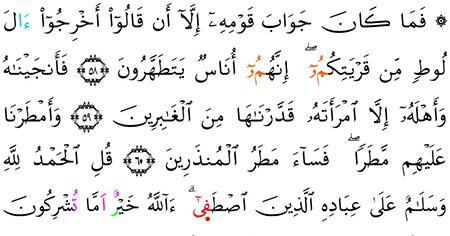 ۞ فَمَا كَانَ جَوَابَ قَوْمِهِۦٓ إِلَّآ أَن قَالُوٓا۟ أَخْرِجُوٓا۟ ءَالَ
لُوطٍ مِّن قَرْيَتِكُمُۥٓ ۖ إِنَّهُمُۥٓ أُنَاسٌ يَتَطَهَّرُونَ ۝٥٨ فَأَنجَيْنَٰهُ
وَأَهْلَهُۥٓ إِلَّا ٱمْرَأَتَهُۥ قَدَّرْنَٰهَا مِنَ ٱلْغَٰبِرِينَ ۝٥٩ وَأَمْطَرْنَا
عَلَيْهِم مَّطَرًا ۖ فَسَآءَ مَطَرُ ٱلْمُنذَرِينَ ۝٦٠ قُلِ ٱلْحَمْدُ لِلَّهِ
وَسَلَٰمٌ عَلَىٰ عِبَادِهِ ٱلَّذِينَ ٱصْطَفَىٰٓ ۗ ءَآللَّهُ خَيْرٌ اَمَّا تُشْرِكُونَ